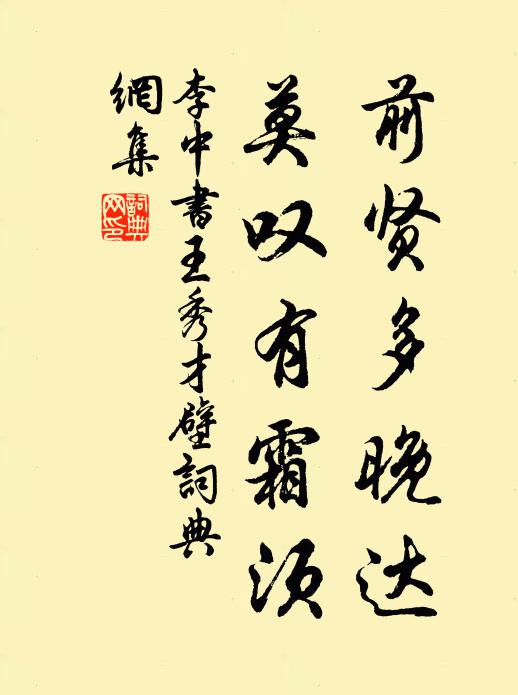 前贤多晚达
莫叹有霜须
李中书王秀才壁詞典
網集
詞典网印